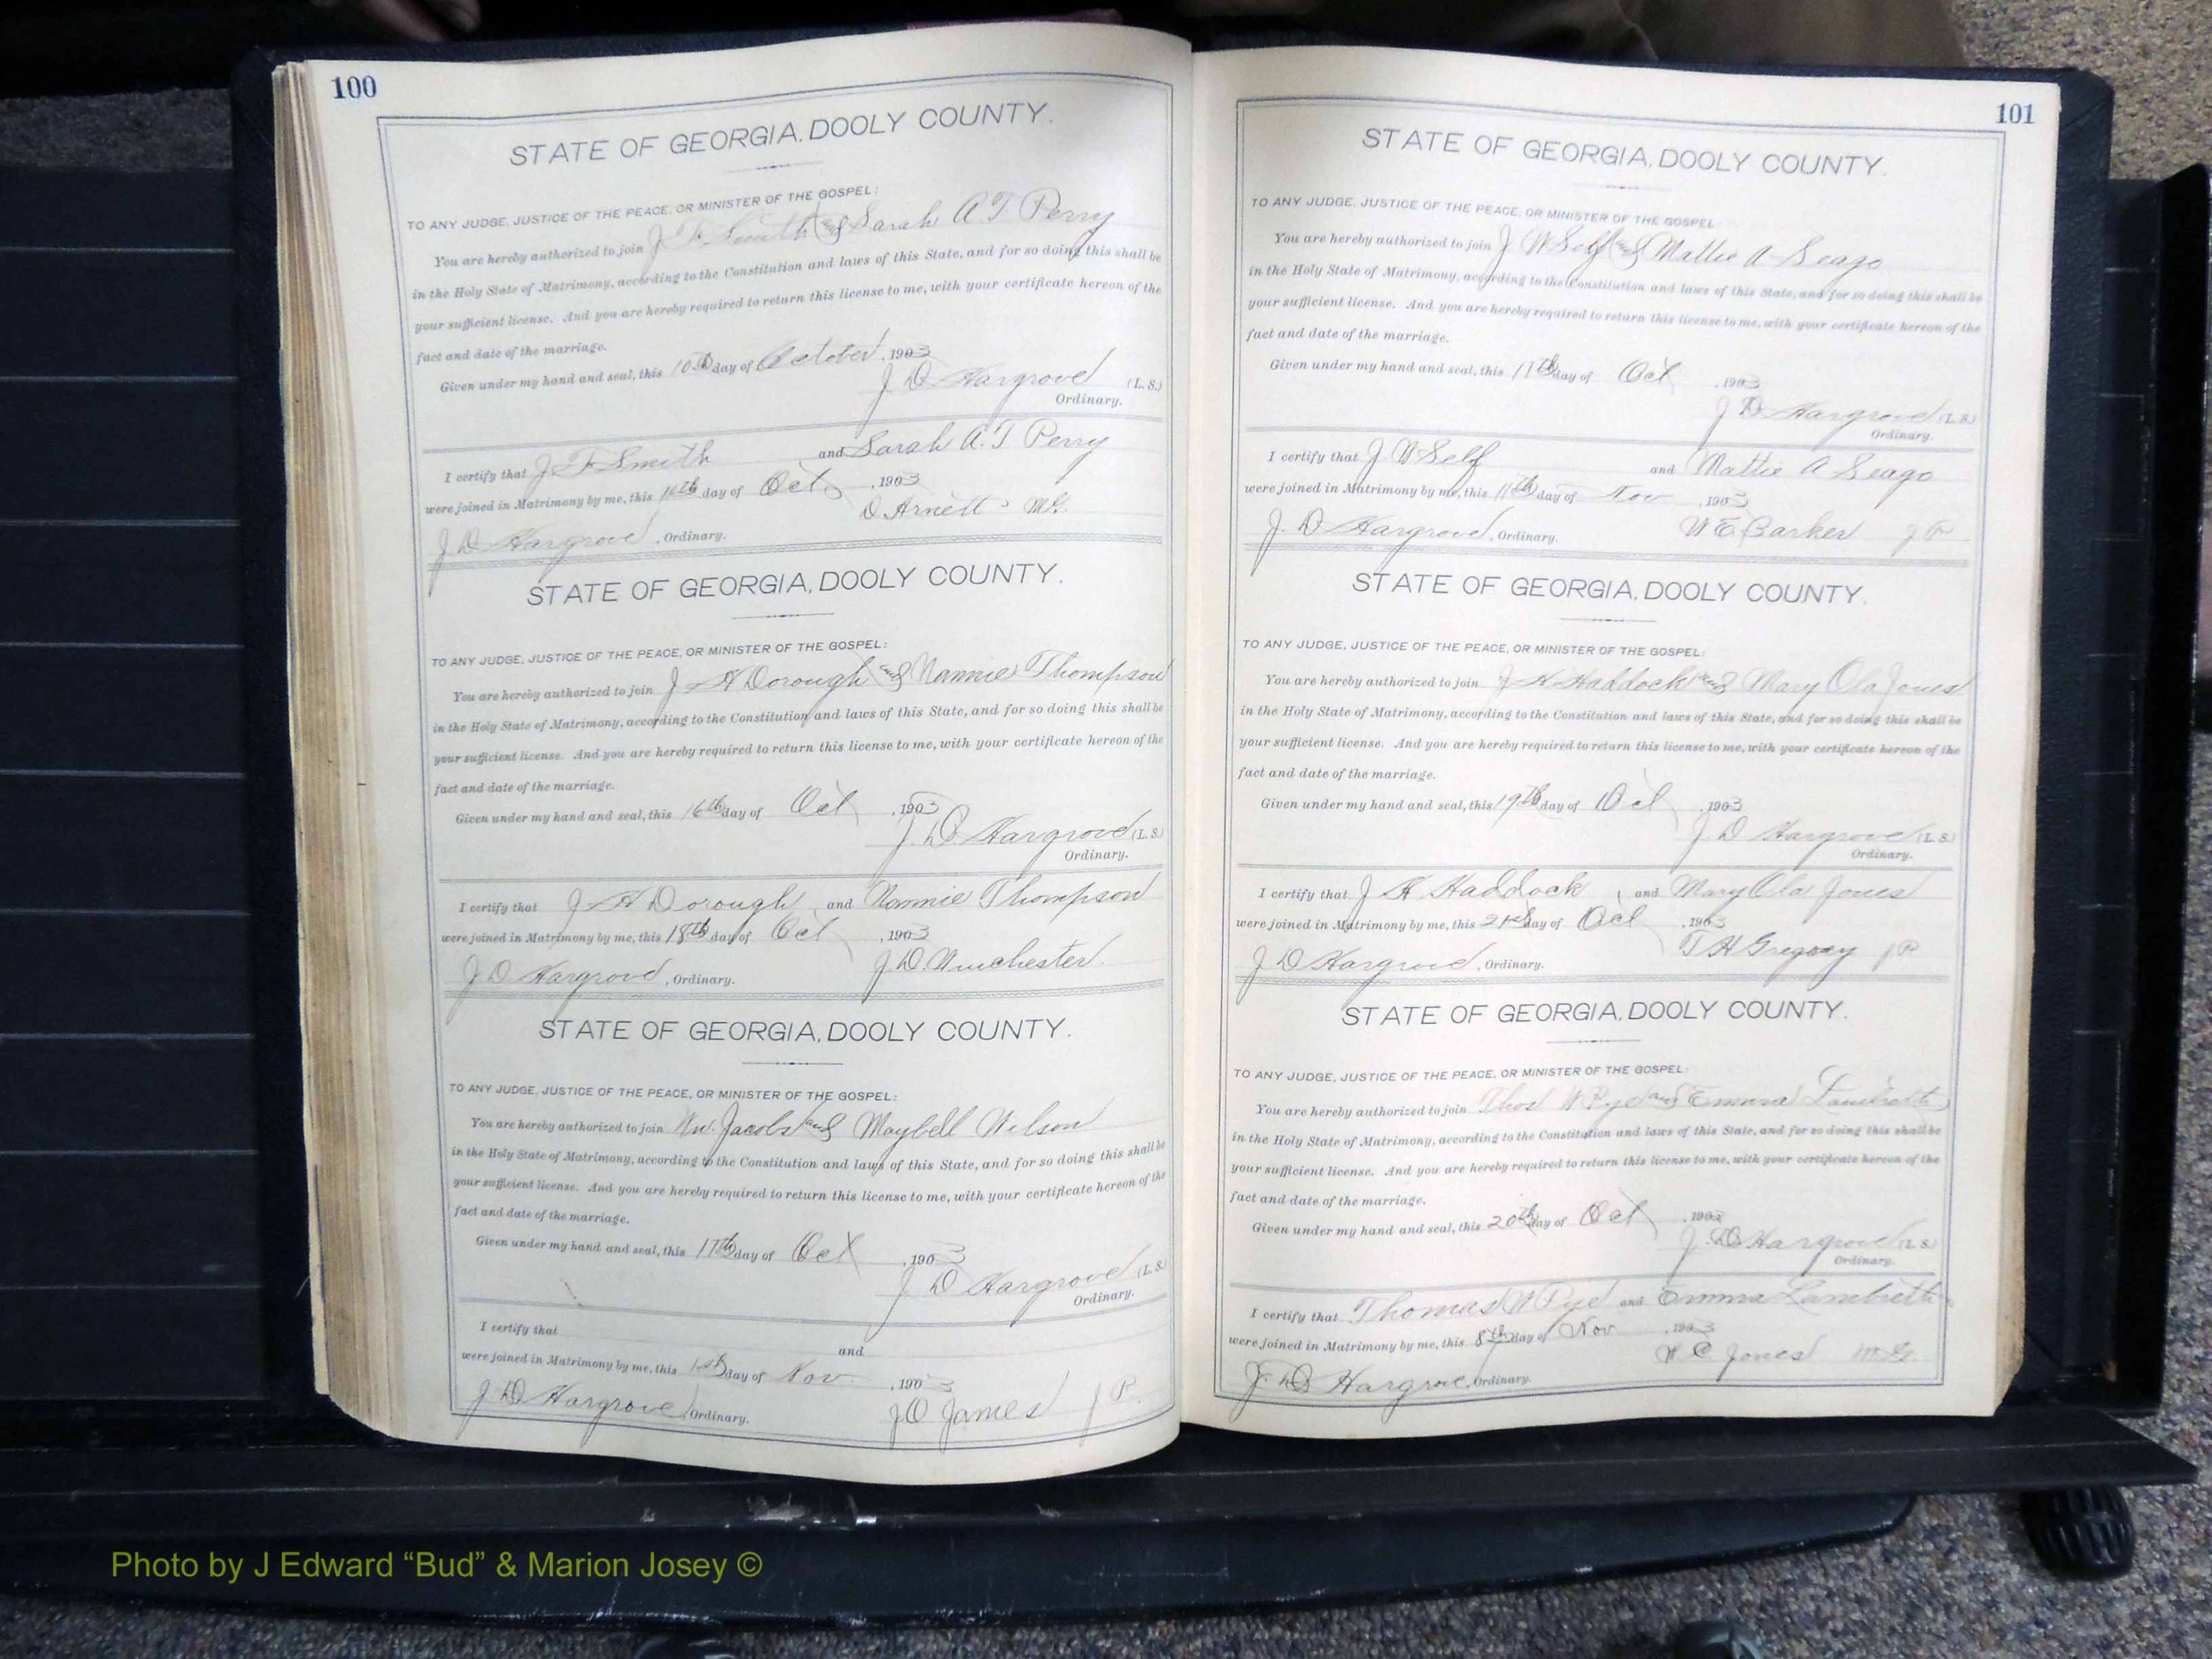 100
STATE OF GEORGIA, DOOLY COUNTY.
TO ANY JUDGE, JUSTICE OF THE PEACE, OR MINISTER OF THE GOSPEL:
You are hereby authorized to join J F Smith and Sarah A. T Perry
in the Holy State of Matrimony, according to the Constitution and laws of this State, and for so doing this shall be
your sufficient license. And you are hereby required to return this license to me, with your certificate hereon of the
fact and date of the marriage.
Given under my hand and seal, this 10th day of October, 1903
J D Hargrove (L. S.)
Ordinary.
I certify that J F Smith and Sarah A. T Perry
were joined in Matrimony by me, this day of Oct, 1903
D Arnett MG.
J D Hargrove, Ordinary.
STATE OF GEORGIA, DOOLY COUNTY.
TO ANY JUDGE, JUSTICE OF THE PEACE, OR MINISTER OF THE GOSPEL:
You are hereby authorized to join J A Dorough and Nannie Thompson
in the Holy State of Matrimony, according to the Constitution and laws of this State, and for so doing this shall be
your sufficient license. And you are hereby required to return this license to me, with your certificate hereon of the
fact and date of the marriage.
Given under my hand and seal, this 16th day of Oct, 1903
J. D. Hargrove (L. S.)
Ordinary.
I certify that J A Dorough and Nannie Thompson
were joined in Matrimony by me, this 18th day of Oct, 1903
J D Hargrove, Ordinary. J D. Winchester.
STATE OF GEORGIA, DOOLY COUNTY.
TO ANY JUDGE, JUSTICE OF THE PEACE, OR MINISTER OF THE GOSPEL:
You are hereby authorized to join Wm. Jacobs and Maybell Wilson
in the Holy State of Matrimony, according to the Constitution and laws of this State, and for so doing this shall be
your sufficient license. And you are hereby required to return this license to me, with your certificate hereon of the
fact and date of the marriage.
Given under my hand and seal, this 17th day of Oct, 1903
J D Hargrove (L. S.)
Ordinary.
I certify that and
were joined in Matrimony by me, this 1st day of Nov., 1903
J D Hargrove, Ordinary. J O James J P.
101
STATE OF GEORGIA, DOOLY COUNTY.
TO ANY JUDGE, JUSTICE OF THE PEACE, OR MINISTER OF THE GOSPEL:
You are hereby authorized to join J W Self and Mattie A Seago
in the Holy State of Matrimony, according to the Constitution and laws of this State, and for so doing this shall be
your sufficient license. And you are hereby required to return this license to me, with your certificate hereon of the
fact and date of the marriage.
Given under my hand and seal, this day of Oct, 1903
J D Hargrove (L. S.)
Ordinary.
I certify that J W Self and Mattie A Seago
were joined in Matrimony by me, this 11th day of Nov, 1903
J. D Hargrove, Ordinary. W E Barker J P
STATE OF GEORGIA, DOOLY COUNTY.
TO ANY JUDGE, JUSTICE OF THE PEACE, OR MINISTER OF THE GOSPEL:
You are hereby authorized to join J H Haddock and Mary Ola Jones
in the Holy State of Matrimony, according to the Constitution and laws of this State, and for so doing this shall be
your sufficient license. And you are hereby required to return this license to me, with your certificate hereon of the
fact and date of the marriage.
Given under my hand and seal, this 19th day of Oct, 1903
J. D Hargrove (L. S.)
Ordinary.
I certify that J H Haddock, and Mary Ola Jones
were joined in Matrimony by me, this 21st day of Oct, 1903
J D Hargrove, Ordinary. T H Gregory J P
STATE OF GEORGIA, DOOLY COUNTY.
TO ANY JUDGE, JUSTICE OF THE PEACE, OR MINISTER OF THE GOSPEL:
You are hereby authorized to join Thos W Pye and Emma Lambreth
in the Holy State of Matrimony, according to the Constitution and laws of this State, and for so doing this shall be
your sufficient license. And you are hereby required to return this license to me, with your certificate hereon of the
fact and date of the marriage.
Given under my hand and seal, this 20th day of Oct, 1903
J. D Hargrove (L. S.)
Ordinary.
I certify that Thomas W Pye and Emma Lambreth
were joined in Matrimony by me, this 8th day of Nov, 1903
W C Jones M G
J. D Hargrove, Ordinary.
Photo by J Edward “Bud” & Marion Josey ©